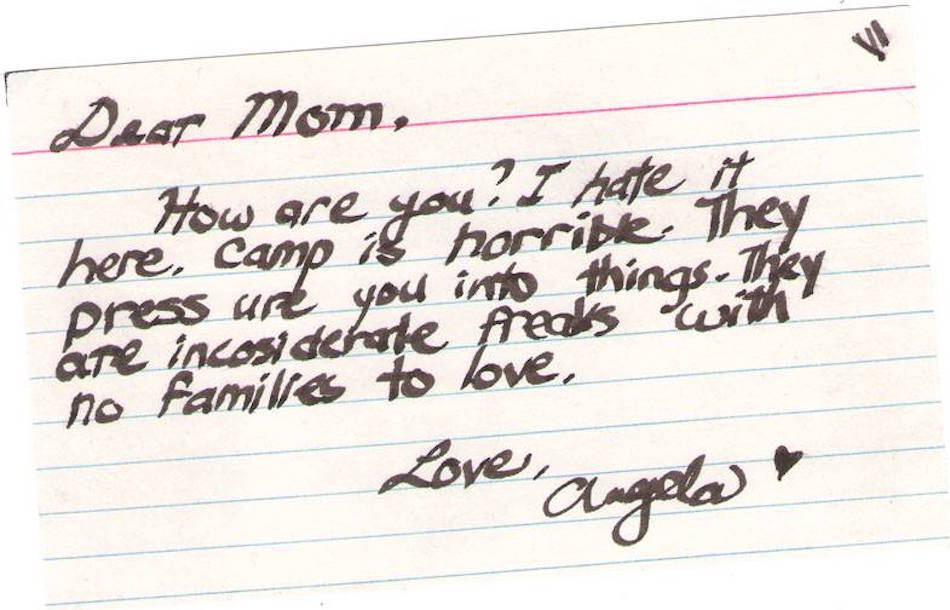 VI
Dear Mom,
How are you? I hate it
here. Camp is horrible. They
press ure you into things. They
are incosiderate freaks with
no families to love.
Love,
Angela ♥